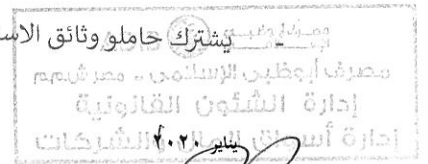 - يشترك حاملو وثائق الاس
مصرف أبوظبي الإسلامي - مصر ش.م.م
إدارة الشئون القانونية
إدارة أسواق المال والشركات
يناير ٢٠٢٠